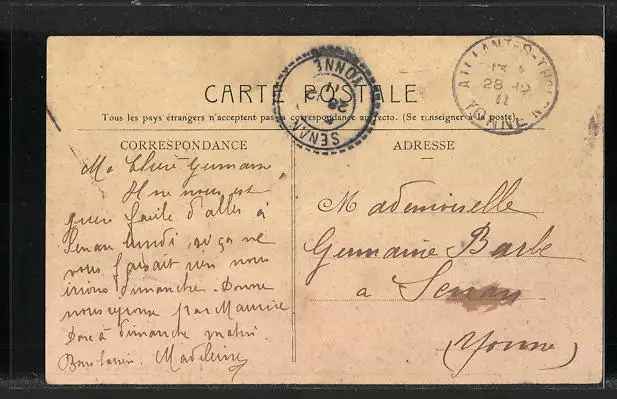 CARTE POSTALE
Tous les pays étrangers n'acceptent pas la correspondance au recto. (Se renseigner à la poste).
CORRESPONDANCE
Ma chère Germaine
Il ne nous est
guère facile d'aller à
Senan lundi, si ça ne
vous faisait rien nous
irions dimanche. Donne
nous réponse par Maurice
Donc à dimanche matin.
Bons baisers. Madeleine
ADRESSE
Mademoiselle
Germaine Barbe
à Senan
(Yonne)
SENAN
YONNE
28
AILLANT-S-THOLON
28
11
YONNE